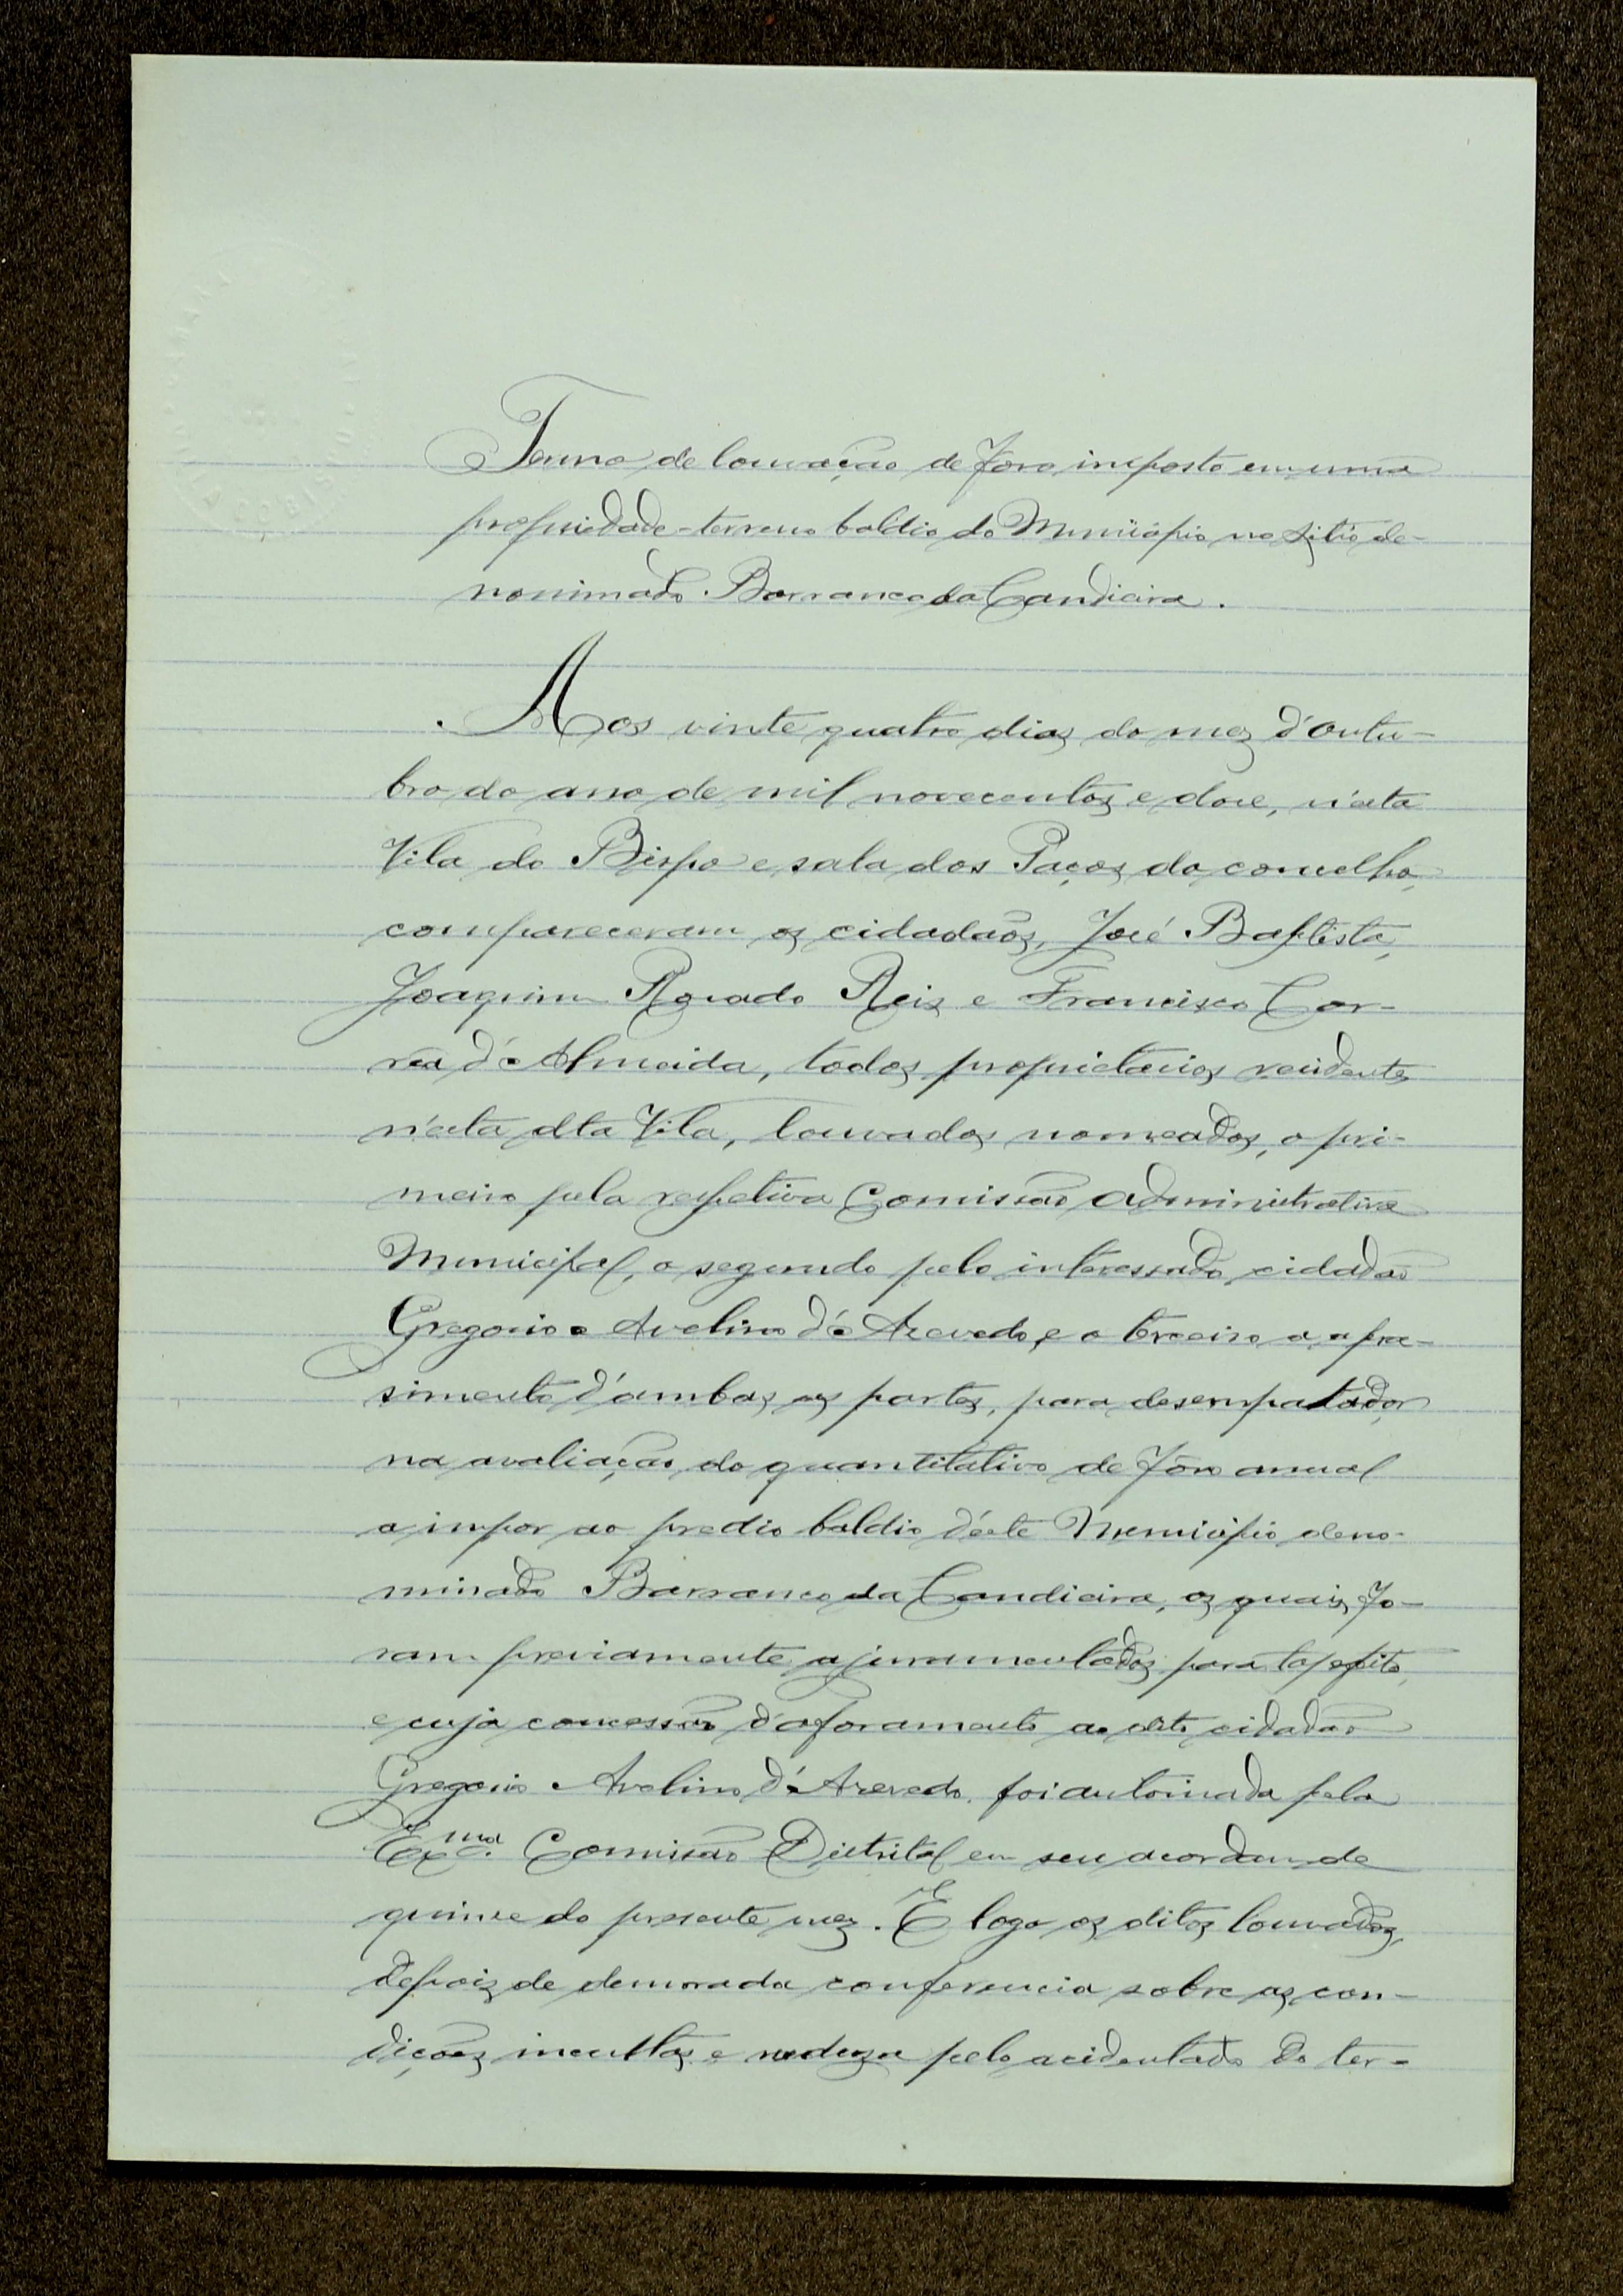 Termo de louvação de fôro imposto em uma
propriedade-terreno baldio do Municipio no sitio de-
nominado Barranco da Candieira.
Aos vinte quatro dias do mez d'outu-
bro do ano de mil novecentos e doze, n'esta
Vila do Bispo e sala dos Paços do concelho,
compareceram os cidadãos, José Baptista,
Joaquim Reis e Francisco Cor-
rea d'Almeida, todos proprietarios residentes
n'esta dta Vila, louvados nomeados, o pri-
meiro pela respetiva Comissão Administrativa
Municipal, o segundo pelo interessado, cidadão
Gregorio Avelino d'Azevedo, e o terceiro a apra-
simento d'ambas as partes, para desempatador
na avaliação do quantitativo de fôro anual
a impor ao predio baldio d'este Municipio deno-
minado Barranco da Candieira, os quais fo-
ram previamente ajuramentados para tal efeito,
e cuja concessão d'aforamento ao dito cidadão
Gregorio Avelino d'Azevedo, foi autorisada pela
Exma. Comissão Distrital em seu acordam de
quinze do presente mez. E logo os ditos louvados,
depois de demorada conferencia sobre as con-
dições incultas e pelo acidentado do ter-